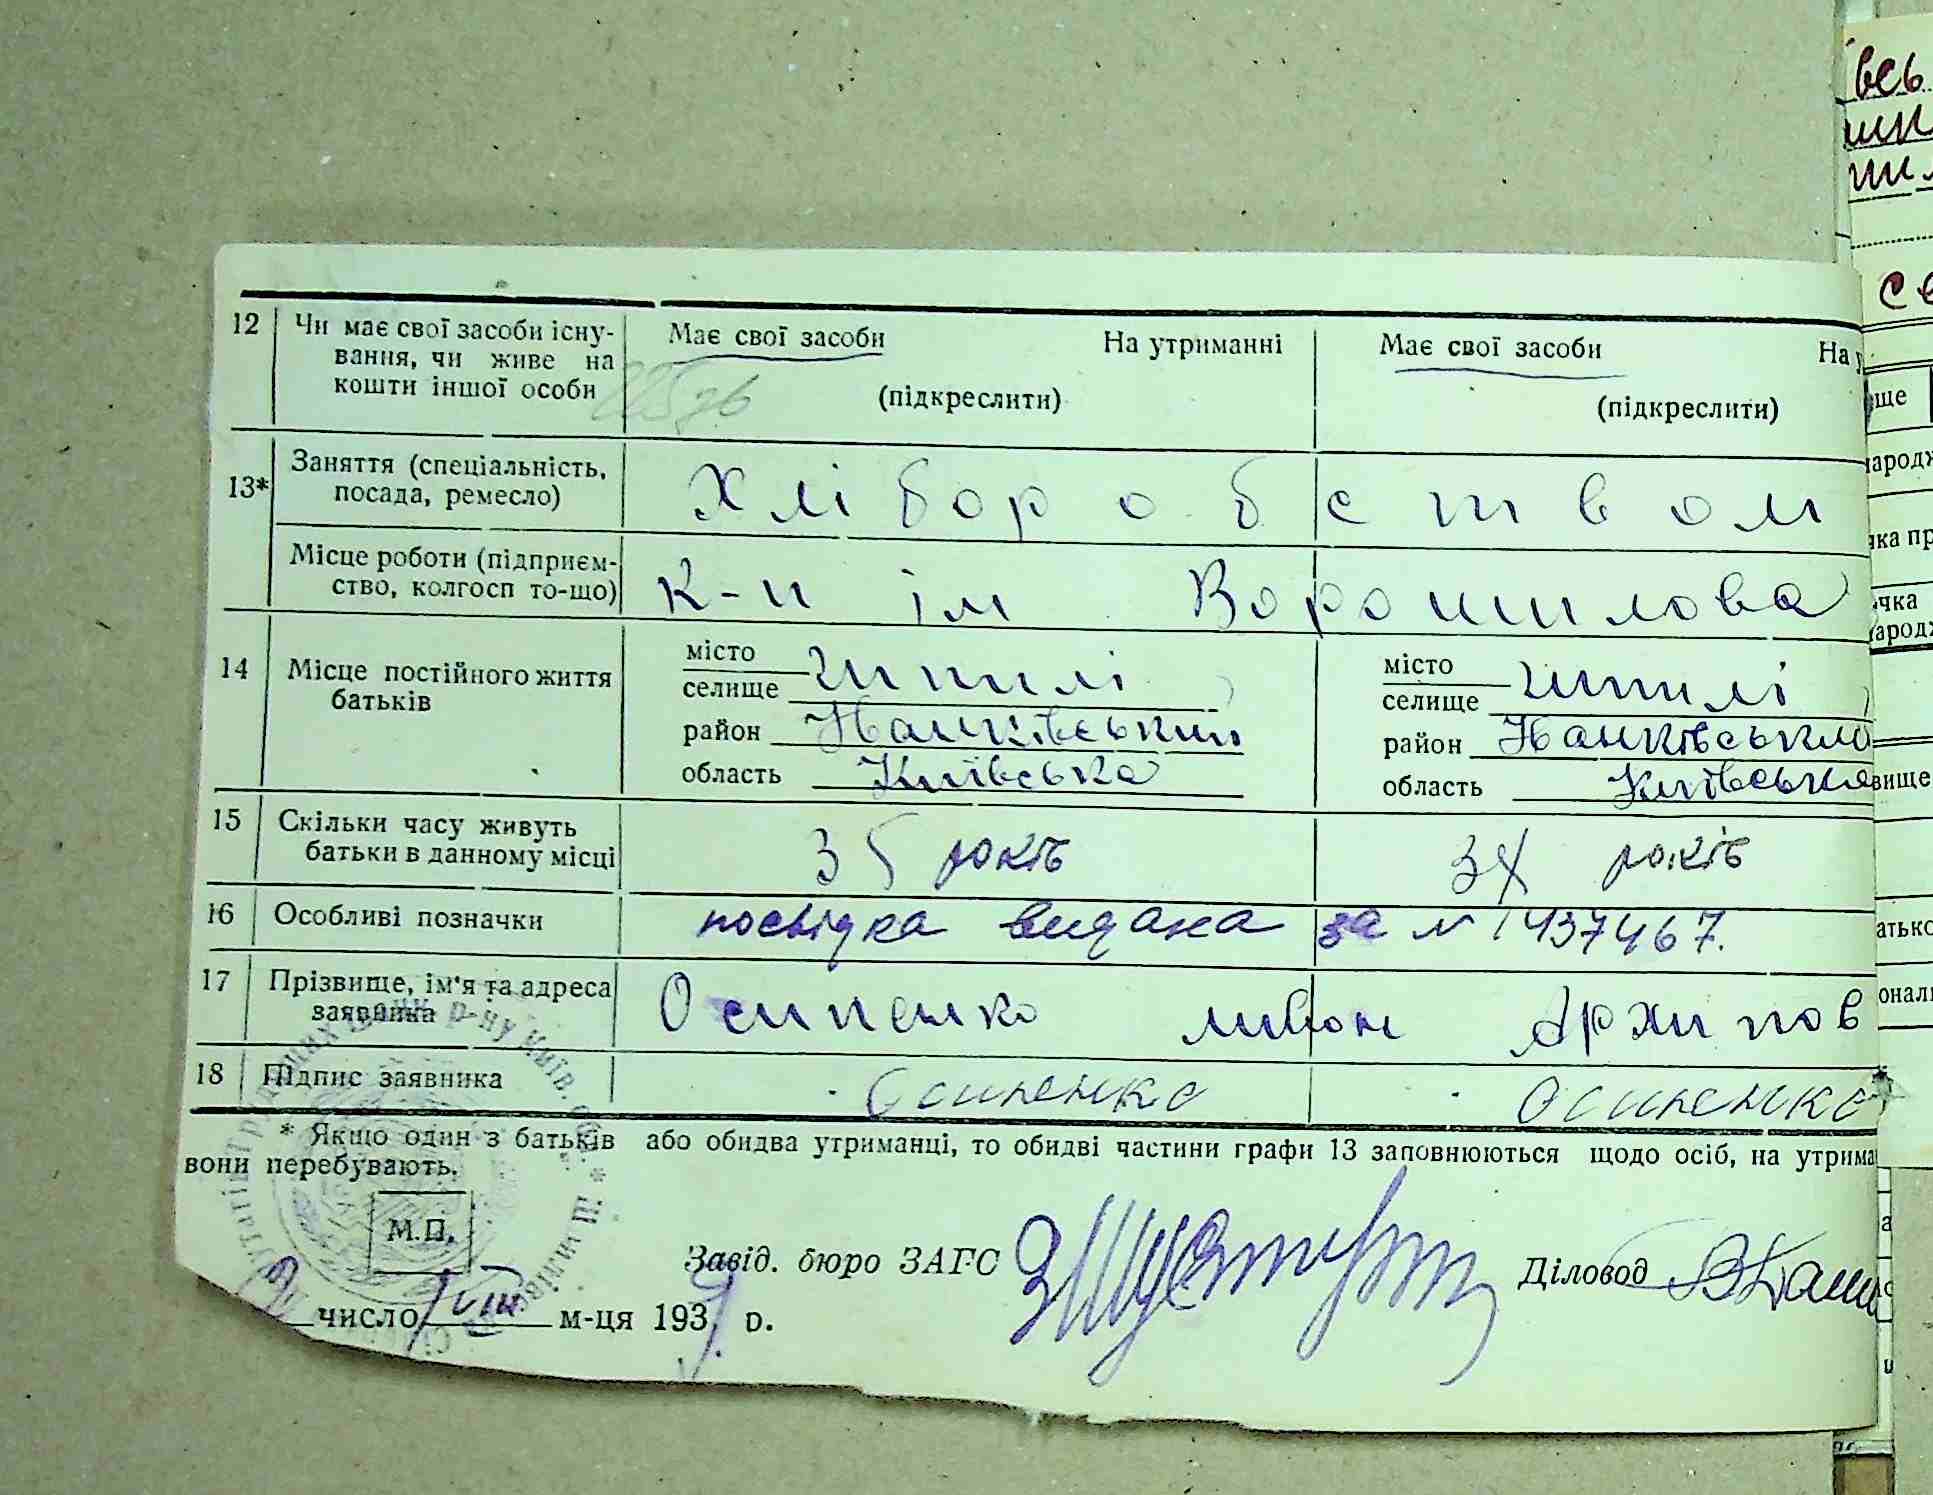 12 Чи має свої засоби існу-
вання, чи живе на
кошти іншої особи
Має свої засоби На утриманні
(підкреслити)
Має свої засоби На у
(підкреслити)
13* Заняття (спеціальність,
посада, ремесло)
Хліборобством
Місце роботи (підприєм-
ство, колгосп то-що)
К-п ім Ворошилова
14 Місце постійного життя
батьків
місто
селище Шпилі
район Іванківський
область Київська
місто
селище Шпилі
район Іванківський
область Київська
15 Скільки часу живуть
батьки в данному місці
35 років
років
16 Особливі позначки
посвідка видана за № 1437467.
17 Прізвище, ім'я та адреса
заявника
Осипенко Архипов
18 Підпис заявника
Осипенко
Осипенко
* Якщо один з батьків або обидва утриманці, то обидві частини графи 13 заповнюються щодо осіб, на утрима
вони перебувають.
М.П.
Завід. бюро ЗАГС
Діловод
число VIII м-ця 1939 р.